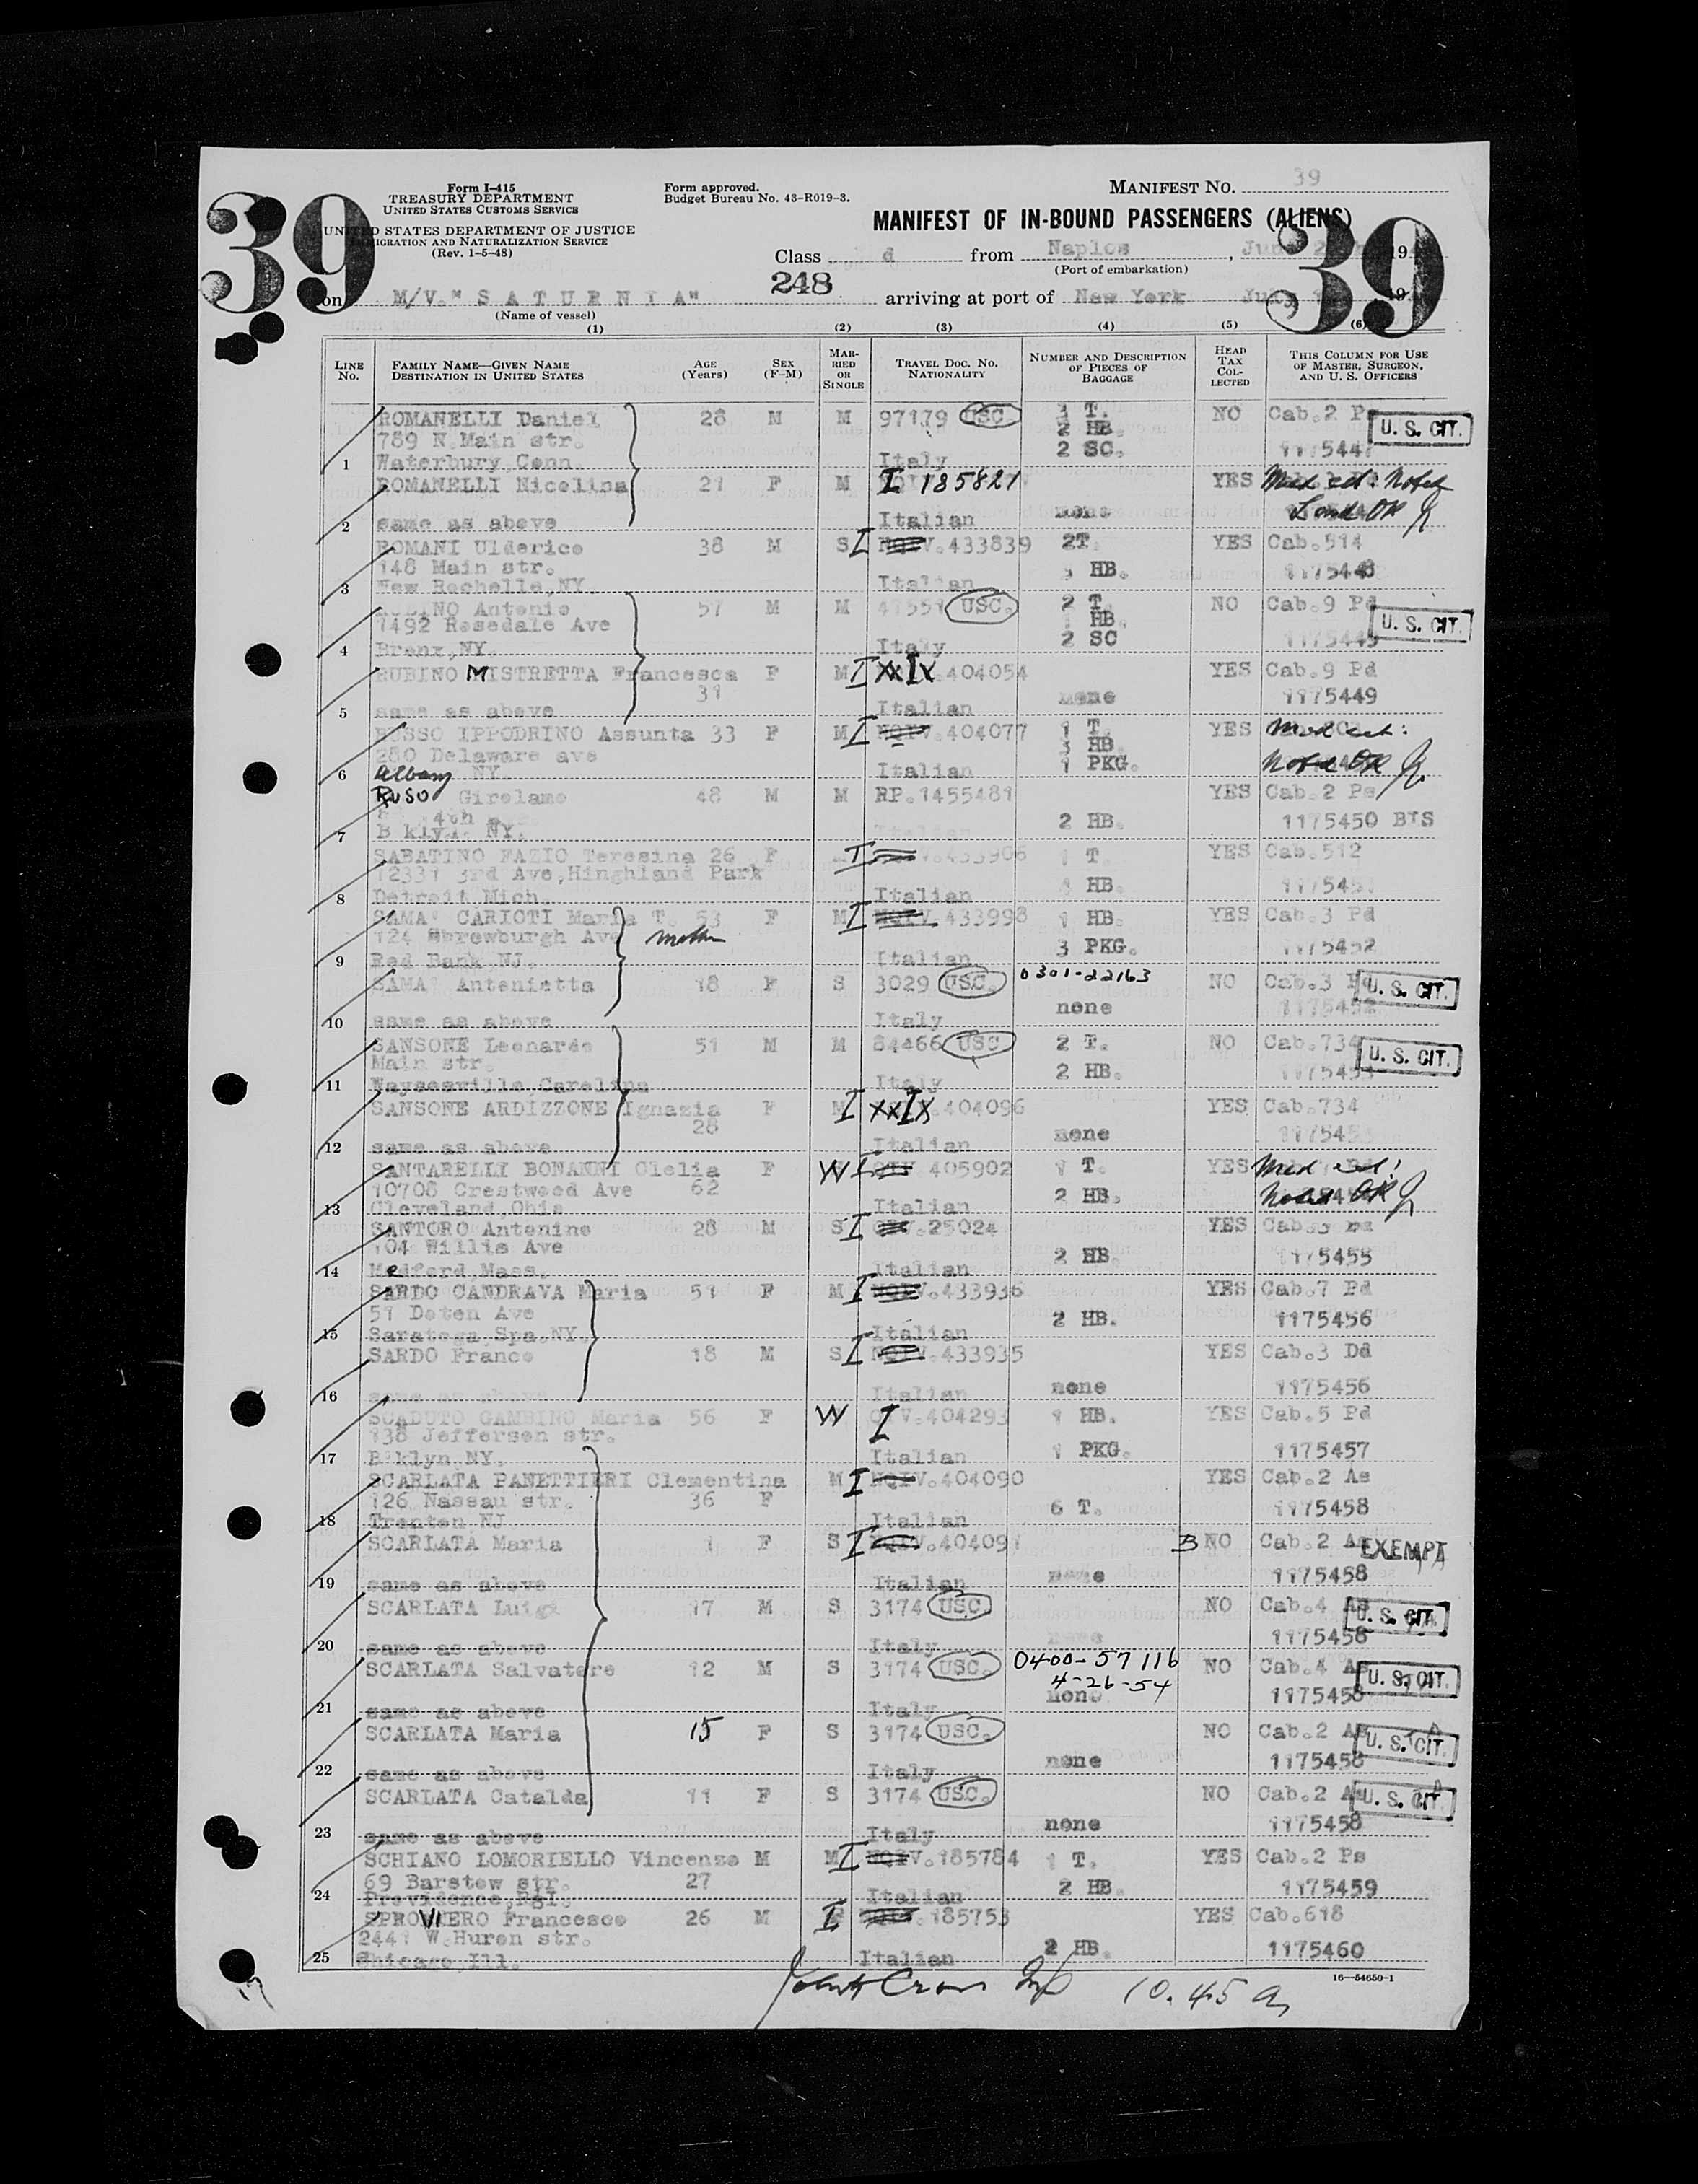 39
Form I-415
TREASURY DEPARTMENT
UNITED STATES CUSTOMS SERVICE
UNITED STATES DEPARTMENT OF JUSTICE
IMMIGRATION AND NATURALIZATION SERVICE
(Rev. 1-5-48)
Form approved.
Budget Bureau No. 43-R019-3.
MANIFEST NO. 39
MANIFEST OF IN-BOUND PASSENGERS (ALIENS)
39
Class d from Naples, 19
(Port of embarkation)
248
on M/V." S A T U R N I A" arriving at port of New York July 19
(Name of vessel)
(1) (2) (3) (4) (5) (6)
LINE No. FAMILY NAME—GIVEN NAME DESTINATION IN UNITED STATES AGE (Years) SEX (F-M) MARRIED OR SINGLE TRAVEL DOC. NO. NATIONALITY NUMBER AND DESCRIPTION OF PIECES OF BAGGAGE HEAD TAX COLLECTED THIS COLUMN FOR USE OF MASTER, SURGEON, AND U. S. OFFICERS
ROMANELLI Daniel 28 M M 97179 USC T. NO Cab.2 U. S. CIT.
789 N.Main str. 2 HB.
1 Waterbury Conn. Italy 2 SC.
ROMANELLI Nicolina 21 F M I 185821 YES Med cet: Noted
2 same as above Italian none OK
ROMANI Ulderico 38 M S I V.433839 2T. YES Cab.514
148 Main str. HB.
3 New Rochelle,NY. Italian
Antonio 57 M M USC. 2 T. NO Cab.9 Pd U. S. CIT.
1492 Rosedale Ave HB.
4 Bronx,NY. Italy 2 SC 1175449
RUBINO MISTRETTA Francesca F M I 404054 YES Cab.9 Pd
31 none 1175449
5 same as above Italian
RUSSO IPPODRINO Assunta 33 F M I V.404077 1 T. YES Med cet:
280 Delaware ave 3 HB.
6 Albany NY. Italian 1 PKG. OK
RUSO Girolamo 48 M M RP.1455481 YES Cab.2 Ps
4th 2 HB. 1175450 BIS
7 B klyn. NY.
SABATINO FAZIO Teresina 26 F I 1 T. YES Cab.512
12331 3rd Ave,Hinghland Park HB.
8 Detroit Mich. Italian
SAMA' CARIOTI Maria T. 53 F M I V.433998 1 HB. YES Cab.3 Pd
124 Shrewburgh Ave mother 3 PKG. 1175452
9 Red Bank NJ. Italian
SAMA' Antonietta 18 F S 3029 USC. 0301-22163 NO Cab.3 U. S. CIT.
none 1175452
10 same as above Italy
SANSONE Leonardo 51 M M 84466 USC 2 T. NO Cab.734 U. S. CIT.
Main str. 2 HB.
11 Waynesville,Carolina Italy
SANSONE ARDIZZONE Ignazia F M I 404096 YES Cab.734
28 none
12 same as above Italian
SANTARELLI BONANNI Clelia F W I 405902 1 T. YES Med cet:
10708 Crestwood Ave 62 2 HB. OK
13 Cleveland,Ohio Italian
SANTORO Antonino 28 M S I V.25024 YES Cab.
104 Willis Ave 2 HB. 1175455
14 Medford Mass. Italian
SARDO CANDRAVA Maria 51 F M I V.433936 YES Cab.7 Pd
51 Doten Ave 2 HB. 1175456
15 Saratoga Spa,NY. Italian
SARDO Franco 18 M S I V.433935 YES Cab.3 Dd
16 same as above Italian none 1175456
SCADUTO GAMBINO Maria 56 F W I V.404293 1 HB. YES Cab.5 Pd
138 Jefferson str. 1 PKG. 1175457
17 B klyn,NY. Italian
SCARLATA PANETTIERI Clementina M I V.404090 YES Cab.2 As
126 Nassau str. 36 F 6 T. 1175458
18 Trenton NJ Italian
SCARLATA Maria 1 F S I V.404091 B NO Cab.2 As EXEMPT
19 same as above Italian none 1175458
SCARLATA Luigi 17 M S 3174 USC. NO Cab.4 As U. S. CIT.
20 same as above Italy none 1175458
SCARLATA Salvatore 12 M S 3174 USC. 0400-57116 NO Cab.4 As U. S. CIT.
4-26-54
21 same as above Italy none 1175458
SCARLATA Maria 15 F S 3174 USC. NO Cab.2 As U. S. CIT.
22 same as above Italy none 1175458
SCARLATA Catalda 11 F S 3174 USC. NO Cab.2 As U. S. CIT.
23 same as above Italy none 1175458
SCHIANO LOMORIELLO Vincenzo M M I V.185784 1 T. YES Cab.2 Ps
69 Barstow str. 27 2 HB. 1175459
24 Providence,R.I. Italian
SPROVIERO Francesco 26 M I 185753 YES Cab.618
2441 W.Huron str. 2 HB. 1175460
25 Chicago,Ill. Italian
16—54650-1
10.45 a